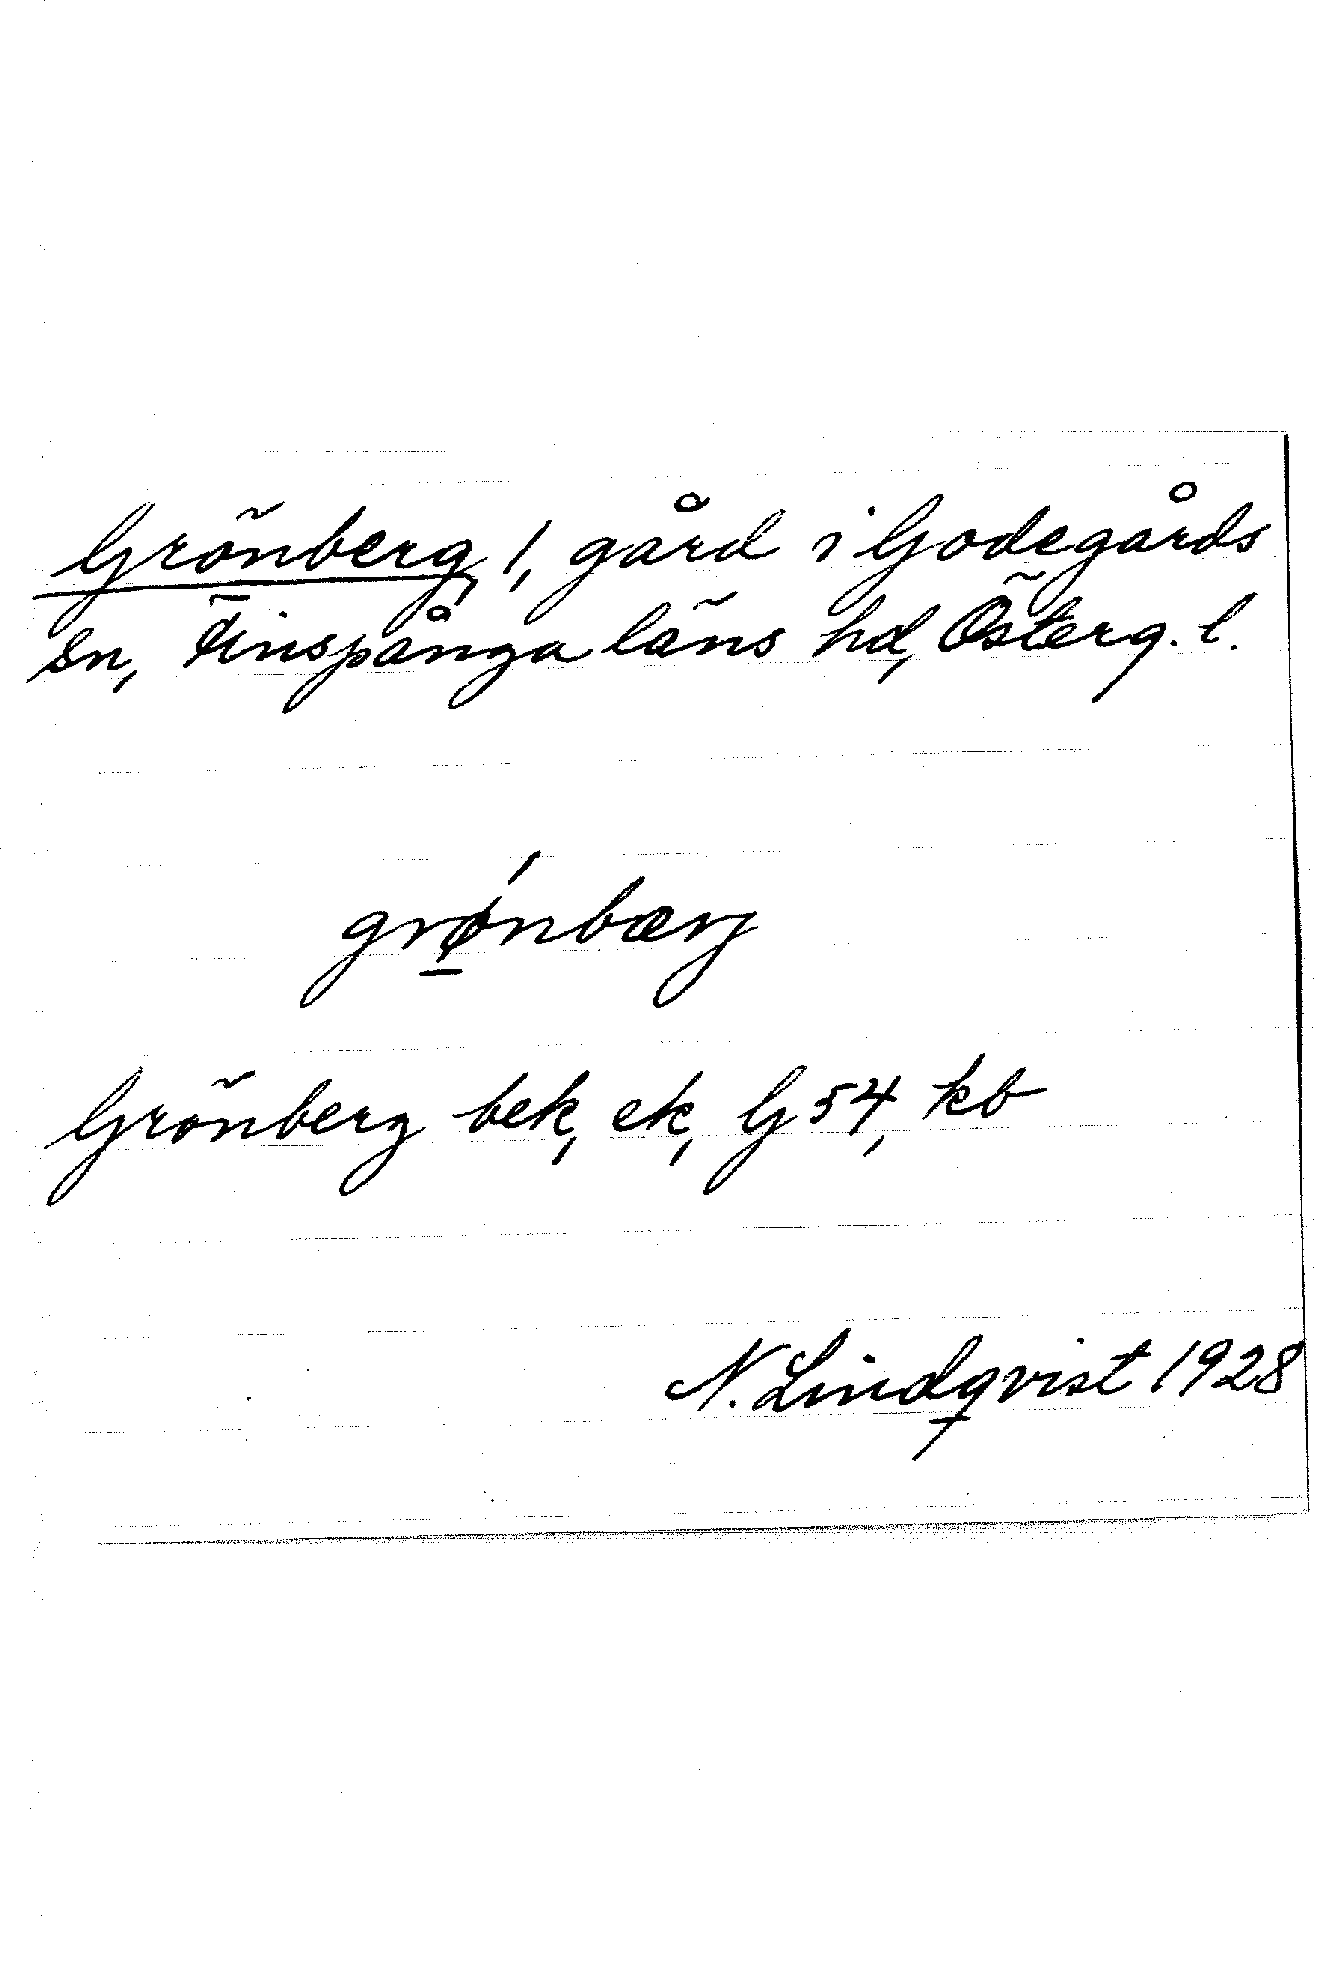 Grönberg, 1, gård i Godegårds
sn, Finspånga läns hd, Österg. l.
grǿ̲nbærj
Grönberg bek, ek, G 54, kb
N. Lindqvist 1928